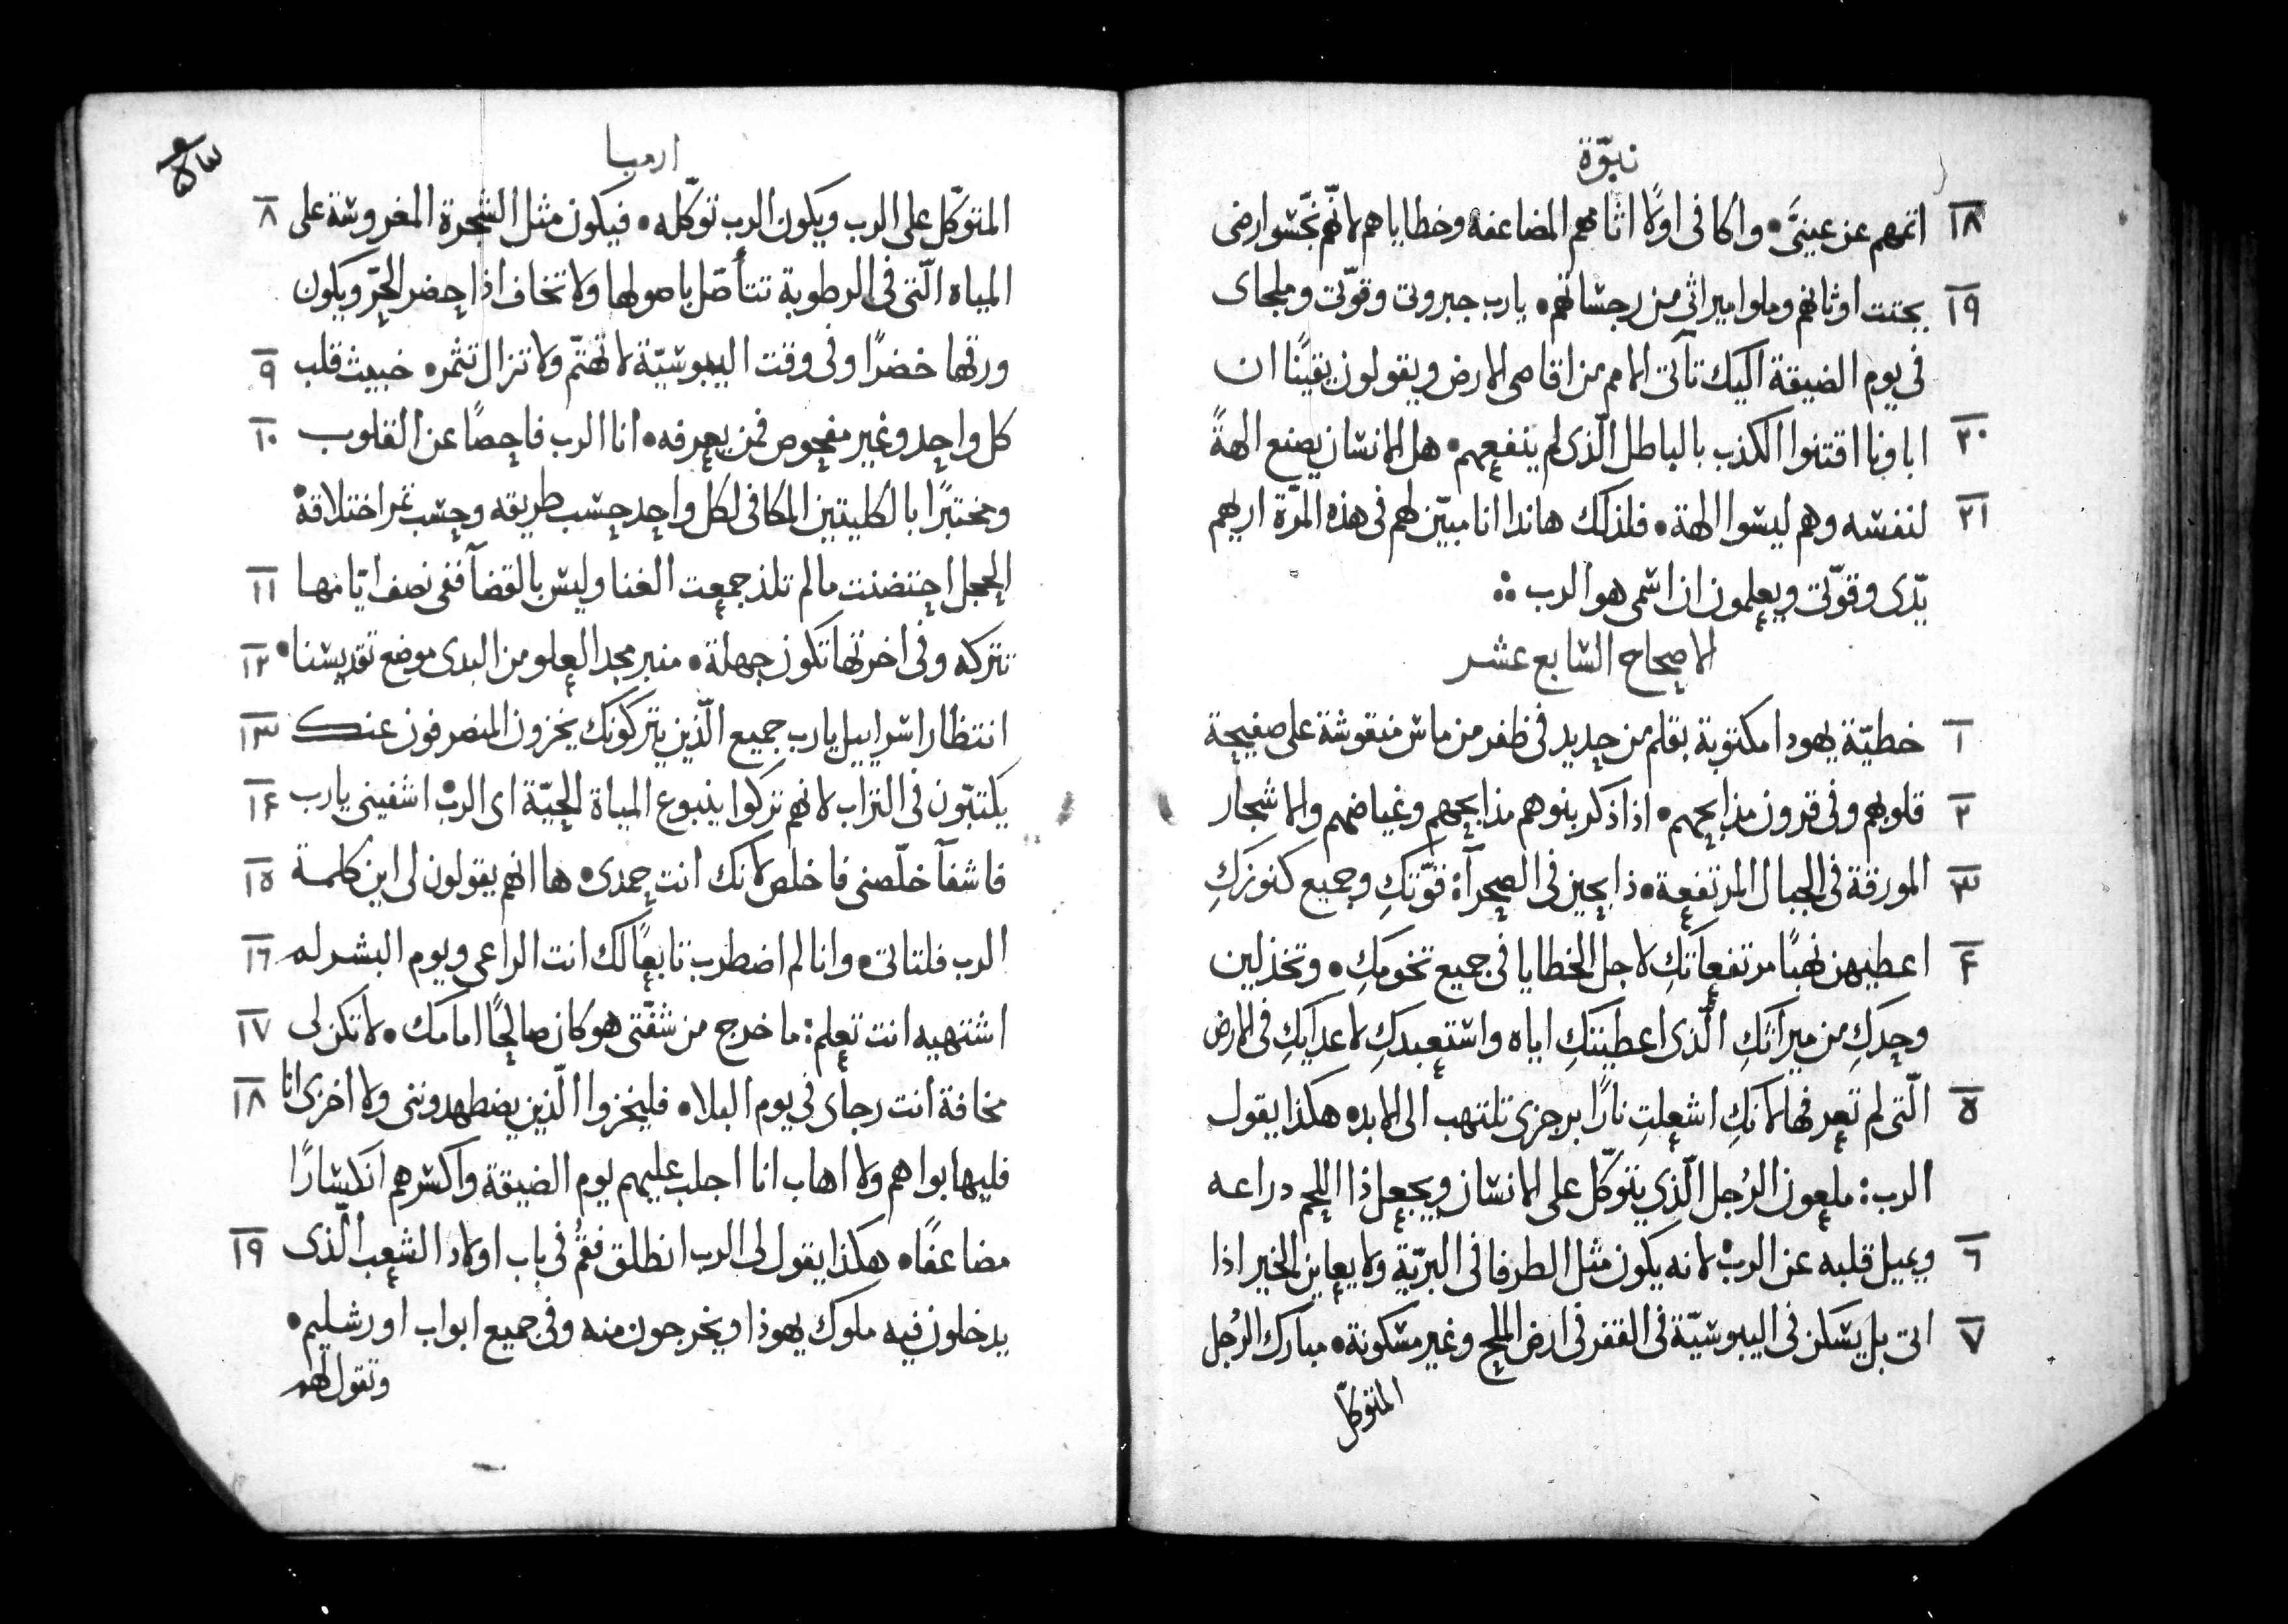 نبوّة
١٨ اثمهم عن عينيَّ • واكافى اولًا اثامهم المضاعفه وخطاياهم لانّهم نجّسوا ارضى
١٩ بجتت اوثانهم وملوا ميراثى من رجساتهم • يارب جبروتى وقوّتى وملجاى
فى يوم الضيقة اليك تآتى الامم من اقاصى الارض ويقولون يقينًا ان
٢٠ اباونا اقتنوا الكذب بالباطل الّذى لم ينفعهم • هل الانسان يصنع الهةً
٢١ لنفسه وهم ليسوا الهة • فلذلك هاندا انا مبيّن لهم فى هذه المرّة اريهم
يدّى وقوّتى ويعلمون ان اسمى هو الرب ؞
الاصحاح السابع عشر
١ خطيّة يهودا مكتوبة بقلم من حديد فى ظفر من ماس منقوشة على صفيحة
٢ قلوبهم وفى قرون مذابحهم • اذا ذكر بنوهم مذابحهم وغياضهم والاشجار
٣ المورقة فى الجبال المرتفعة • ذابحين فى الصحرآء قوّتكِ وجميع كنوزكِ
٤ اعطيهن نهبًا مرتفعاتكِ لاجل الخطايا فى جميع تخومكِ • وتخذلين
وحدكِ من ميراثكِ الّذى اعطيتكِ اياه واستعبدكِ لاعدايكِ فى الارض
٥ الّتى لم تعرفها لانكِ اشعلتِ نارًا برجزى تلتهب الى الابد • هكذا يقول
الرب: ملعون الرُجل الّذى يتوكّل على الانسان ويجعل ذا اللحم دراعه
٦ ويميل قلبه عن الرب • لانه يكون مثل الطرفا فى البرّية ولا يعاين الخير اذا
٧ اتى بل يسكن فى اليبوسيّة فى القفر فى ارض الملح وغير مسكونة • مبارك الرُجل
المتوكّل
ارميا
٥٣
المتوكّل على الرب ويكون الرب توكّله • فيكون مثل الشجرة المغروسة على ٨
المياه الّتى فى الرطوبة تتأصّل باصولها ولا تخاف اذا حضر الحرّ ويكون
ورقها خضرًا وفى وقت اليبوسيّة لا تهتمّ ولا تزال تثمر • خبيث قلب ٩
كل واحد وغير مفحوص فمن يعرفه • انا الرب فاحصًا عن القلوب ١٠
ومختبرًا بالكليتين المكافى لكل واحد حسب طريقه وحسب ثمر اختلاقه •
الحجل احتضنت مالم تلد جمعت الغنا وليس بالقضآ ففى نصف ايّامها ١١
تتركه وفى اخرتها تكون جهلة • منبر مجد العلو من البدى موضع تقديسنا • ١٢
انتظار اسراييل يارب جميع الّذين يتركونك يخزون المنصرفون عنك ١٣
يكتبّون فى التراب لانهم تركوا ينبوع المياة الحيّة اى الرب • اشفينى يارب ١٤
فاشفآ خلّصنى فاخلص لانك انت حمدى • ها انهم يقولون لى اين كلمة ١٥
الرب فلتاتى • وانا لم اضطرب تابعًا لك انت الراعى ويوم البشر لم ١٦
اشتهيه انت تعلم: ما خرج من شفّتى هو كان صالحًا امامك • لا تكن لى ١٧
مخافة انت رجاى فى يوم البلا • فليخزوا الّذين يضطهدوننى ولا اخزى انا ١٨
فليهابوا هم ولا اهاب انا اجلب عليهم يوم الضيقة واكسرهم انكسارًا
مضاعفًا • هكذا يقول لى الرب انطلق فقُم فى باب اولاد الشعب الّذى ١٩
يدخلون فيه ملوك يهوذا ويخرجون منه وفى جميع ابواب اورشليم •
وتقول لهم